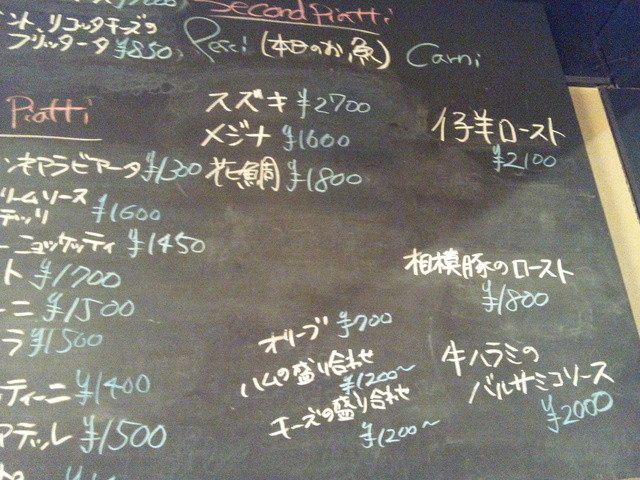 Second Piatti
リコッタチーズの
フリッタータ ¥850
Pesci (本日のお魚)
Carni
Piatti
スズキ ¥2700
メジナ ¥1600
花鯛 ¥1800
仔羊ロースト
¥2100
アラビアータ ¥1300
ムソース
¥1600
ニョッケッティ ¥1450
ト ¥1700
ニ ¥1500
ラ ¥1500
ッティーニ ¥1400
アデッレ ¥1500
相模豚のロースト
¥1800
オリーブ ¥700
ハムの盛り合わせ
¥1200～
チーズの盛り合わせ
¥1200～
牛ハラミの
バルサミコソース
¥2000